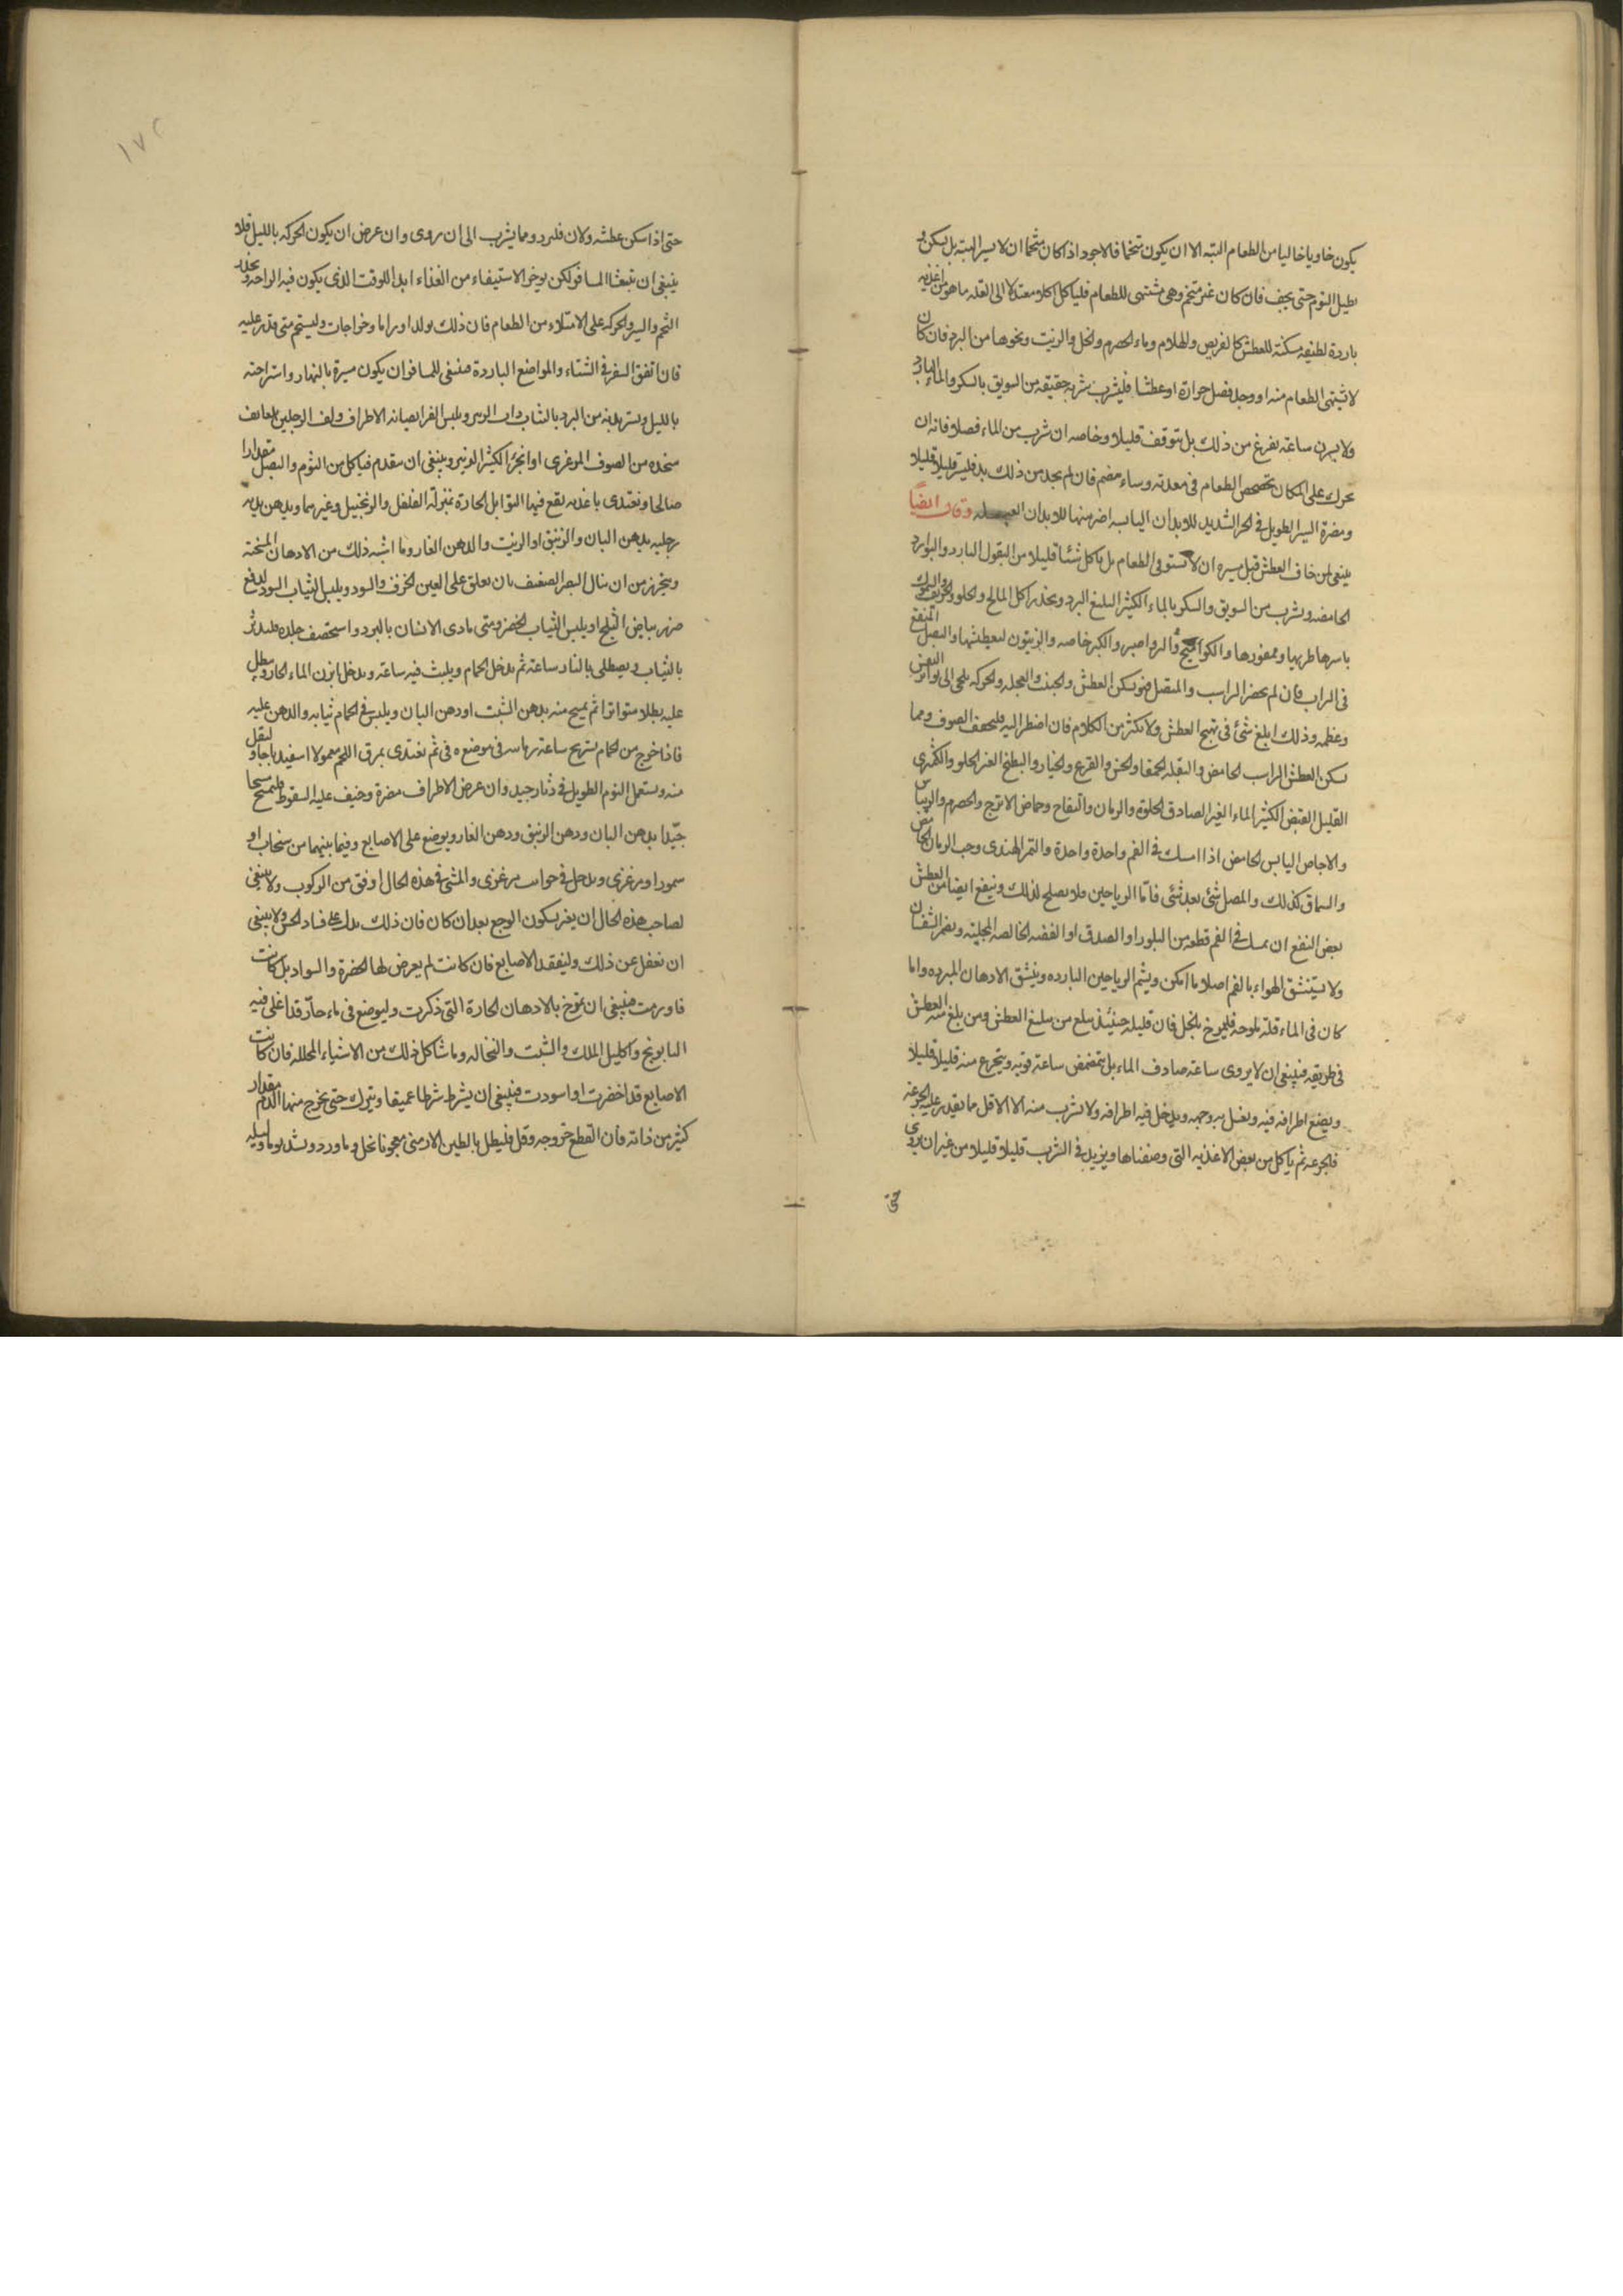 يكون خاويا خاليا من الطعام البته الا ان يكون متخما فالاجود اذا كان متخما ان لا يسير البته بل يسكن و
يطيل النوم حتى يخف فان كان غير متخم وهى مشتهى للطعام فلياكل اكلا معتدلا الى القله ما هو من اغذيه
باردة لطيفه مسكنة للعطش كالقريص والهلام وماء الحصرم والخل والزيت ونحوها من البرد فان كان
لا يشتهى الطعام منه او وجد فضل حرارة او عطشا فليشرب شربه حقيقه من السويق بالسكر والماء البارد
ولا يسيرن ساعة يفرغ من ذلك بل يتوقف قليلا وخاصه ان شرب من الماء فضلا فانه ان
تحرك على المكان تخضخض الطعام فى معدته وساء هضم فان لم يجد من ذلك بد فليسر قليلا قليلا
ومضرة السير الطويل فى الحر الشديد للابدان اليابسه اضر منها للابدان العبله وقال ايضا
ينبغى لمن خاف العطش قبل مسيره ان لا يستوفى الطعام بل ياكل شيئا قليلا من البقول البارد والبوارد
الحامضه ويشرب من السويق والسكر بالماء الكثير البليغ البرد ويحذر اكل المالح والحلو والحريف والسمك
باسرها طريها وممقورها والكواميخ والرواصير والكبر خاصه والزيتون لتعطيشها والبصل المنقع
فى الراب فان لم يحضر الراب والمتصل فهو يسكن العطش والجبنه والعجله والحركه تلجى الى تواتر النفس
وعظمه وذلك ابلغ شئ فى تهيج العطش ولا يكثر من الكلام فان اضطر اليه فليخفف الصوت ومما
يسكن العطش الراب الحامض والبقله الحمقا والخس والقرع والخيار والبطيخ الغير الحلو والكمثرى
القليل القبض الكثير الماء الغير الصادق الحلاوة والرمان والتفاح وحماض الاترج والحصرم والريباس
والاجاص اليابس الحامض اذا امسك فى الفم واحدة واحدة والتمر الهندى وحب الرمان الحامض
والسماق كذلك والمصل شئ بعد شئ فامّا الرياحين فلا يصلح لذلك وينفع ايضا من العطش
بعض النفع ان يمسك فى الفم قطعه من البلور او الصدف او الفضه الخالصه المجليه ويضم الشفتان
ولا يستنشق الهواء بالفم اصلا ما امكن ويشم الرياحين البارده وينشق الادهان المبرده واما
كان فى الماء قلة ملوحه فليمزج بالخل فان قليله حينئذ يبلغ من مبلغ العطش ومن بلغ منه العطش
فى طريقه فينبغى ان لا يروى ساعة صادف الماء بل يتمضمض ساعة قويه ويتجرع منه قليلا قليلا
ويضع اطرافه فيه ويغسل به وجهه ويدخل فيه اطرافه ولا يشرب منه الا الاقل ما يقدر عليه الجرعه
فالجرعه ثم ياكل من بعض الاغذيه التى وصفناها ويزيد فى الشرب قليلا قليلا من غير ان يروى
حتى
١٧٢
حتى اذا سكن عطشه ولان فليرد ومما يشرب الى ان يروى وان عرض ان يكون الحركه بالليل فلا
ينبغى ان يتعشا المسافر لكن يوخر الاستيفاء من الغذاء ابدا للوقت الذى يكون فيه الراحه ويحذر
النوم والسير والحركه على الامتلاء من الطعام فان ذلك يولد اوراما وخراجات وليستحم متى قدر عليه
فان اتفق السفر فى الشتاء والمواضع الباردة فينبغى للمسافر ان يكون مسيره بالنهار واستراحته
بالليل ويستر بدنه من البرد بالثياب ذات الوبر ويلبس الفرا لصيانه الاطراف ولف الرجلين بلفايف
متخده من الصوف المرغزى او الخز الكثير الوبر وينبغى ان يتقدم فياكل من الثوم والبصل مقدارا
صالحا ويغتذى باغذيه يقع فيها التوابل الحارة بمنزلة الفلفل والزنجبيل وغيرهما ويدهن بدنه
برجليه بدهن البان والزنبق او الزيت والدهن الغار وما اشبه ذلك من الادهان المسخنة
ويتحرز من ان ينال البصر الضعف بان يعلق على العين الخرق السود ويلبس الثياب السود لدفع
ضرر بياض الثلج او يلبس الثياب الخضر ومتى تاذى الانسان بالبرد واستحصف جلده فليدثر
بالثياب ويصطلى بالنار ساعة ثم يدخل الحمام ويلبث فيه ساعة ويدخل ابزن الماء الحار ويبطل
عليه بطلا متواترا ثم يمسح منه بدهن الشبت او دهن البان ويلبس فى الحمام ثيابه والدهن عليه
فاذا خرج من الحمام يستريح ساعة فى موضع دفى ثم يغتذى بمرق اللحم معمولا اسفيدباجا وليقل
منه ويستعمل النوم الطويل فى دثار جيد وان عرض الاطراف مضرة وخيف عليه السقوط فليمسح مسحا
جيّدا بدهن البان ودهن الزنبق ودهن الغار ويوضع على الاصابع وفيما بينهما من سنجاب او
سمور او مرغزى ويدخل فى جوارب مرغزى والمشى فى هذه الحال اوفق من الركوب ولا ينبغى
لصاحب هذه الحال ان يغتر بسكون الوجع بعد ان كان فان ذلك يدل على فساد الحس ولا ينبغى
ان يغفل عن ذلك وليفقد الاصابع فان كانت لم يعرض لها الخضرة والسواد بل كانت
قد ورمت فينبغى ان يمرخ بالادهان الحارة التى ذكرت وليوضع فى ماء حارّ قد اغلى فيه
البابونج واكليل الملك والشبت والنخاله وما شاكل ذلك من الاشياء المحلله فان كانت
الاصابع قد اخضرت او اسودت فينبغى ان يشرط شرطا عميقا ويترك حتى يخرج منها الدم مقدار
كثير من ذاته فان انقطع خروجه وقل فليطل بالطين الارمنى معجونا بخل وماورد ويشد يوما وليله